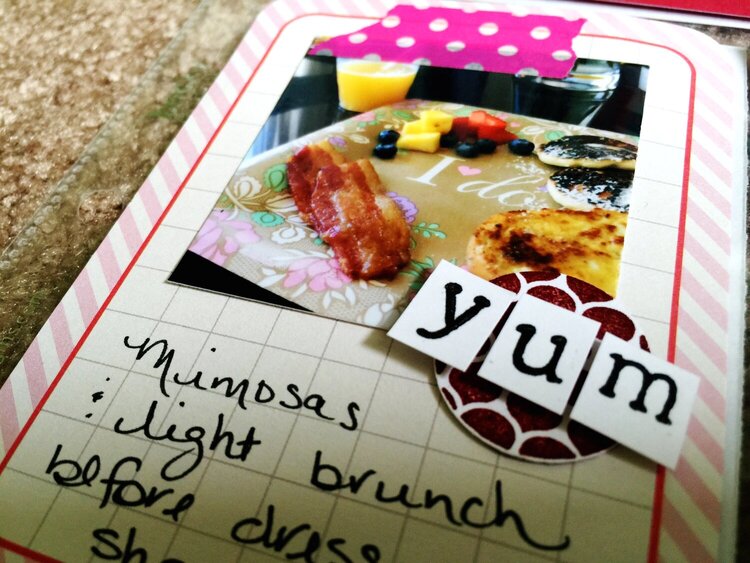 I do
yum
Mimosas
& light brunch
before dress